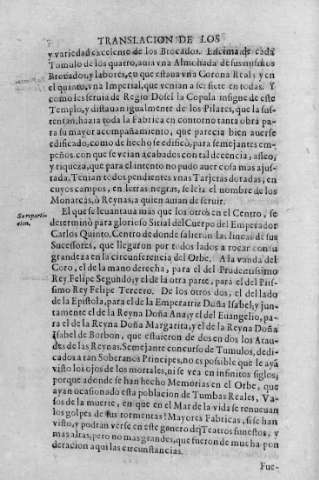 TRANSLACION DE LOS
y variedad excelente de los Brocados. Encima de cada
Tumulo de los quatro, auia vna Almohada de sus mismos
Brocados, y labores, en que estaua vna Corona Real; y en
el quinto, vna Imperial, que venian a ser siete en todas. Y
como les seruia de Regio Dosel la Copula insigne de este
Templo, y distauan igualmente de los Pilares, que la sus-
tentan, hazia toda la Fabrica en contorno tanta obra pa-
ra su mayor acompañamiento, que parecia bien auerse
edificado, como de hecho se edificò, para semejantes em-
peños, con que se veìan acabados con tal decencia, asseo,
y riqueza, que para el intento no pudo auer cosa mas ajus-
tada. Tenian todos pendientes vnas Tarjetas doradas, en
cuyos campos, en letras negras, se leìa el nombre de los
Monarcas, ò Reynas, a quien auian de seruir.
El que se leuantaua mas que los otros en el Centro, se
determinò para glorioso Sitial del Cuerpo del Emperador
Carlos Quinto, Centro de donde salieron las lineas de sus
Sucessores, que llegaron por todos lados a tocar con su
grandeza en la circunferencia del Orbe. A la vanda del
Coro, el de la mano derecha, para el del Prudentissimo
Rey Felipe Segundo; y el de la otra parte, para el del Piis-
simo Rey Felipe Tercero. De los otros dos, el del lado
de la Epistola, para el de la Emperatriz Doña Isabel, y jun-
tamente el de la Reyna Doña Ana; y el del Euangelio, pa-
ra el de la Reyna Doña Margarita, y el de la Reyna Doña
Isabel de Borbon, que estuieron de dos en dos los Atau-
des de las Reynas. Semejante concurso de Tumulos, dedi-
cados a tan Soberanos Principes, no es posible que le aya
visto los ojos de los mortales, ni se vea en infinitos siglos;
porque adonde se han hecho Memorias en el Orbe, que
ayan ocasionado esta poblacion de Tumbas Reales, Va-
sos de la muerte, en que en el Mar de la vida se renueuan
los golpes de sus tormentas? Mayores Fabricas, si se han
visto, y podran verse en este genero de Teatros funestos, y
mas altas, pero no mas grandes, que fueron de mucha pon-
deracion aqui las circunstancias.
Fue-